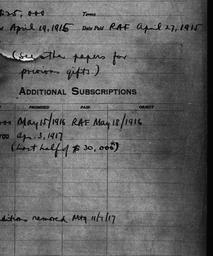 $25,000 Terms
April 19, 1915 Date Paid RAF April 27, 1915
(See other papers for
previous gifts.)
ADDITIONAL SUBSCRIPTIONS
PROMISED PAID OBJECT
000 May 15/1916 RAF May 18/1916
000 Apr. 3, 1917
(Last half of $30,000)
ditions removed Mtg 11/1/17